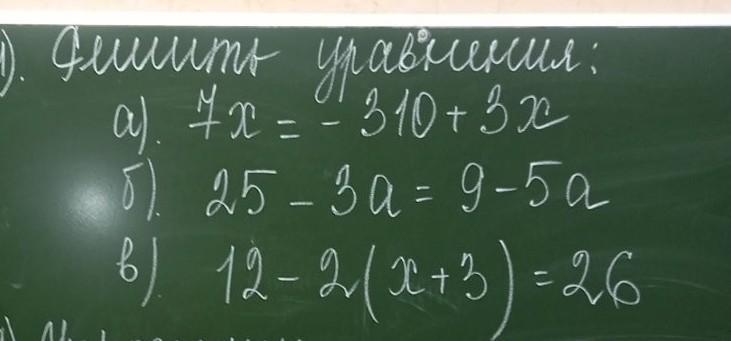 1). Решить уравнения:
а). 7x = - 310 + 3x
б). 25 - 3a = 9 - 5a
в). 12 - 2(x+3) = 26